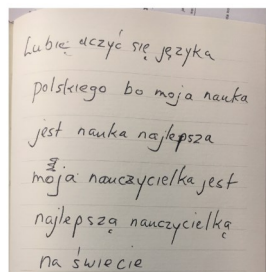 Lubię uczyć się języka
polskiego bo moja nauka
jest nauka najlepsza
moja nauczycielka jest
najlepszą nauczycielką
na świecie